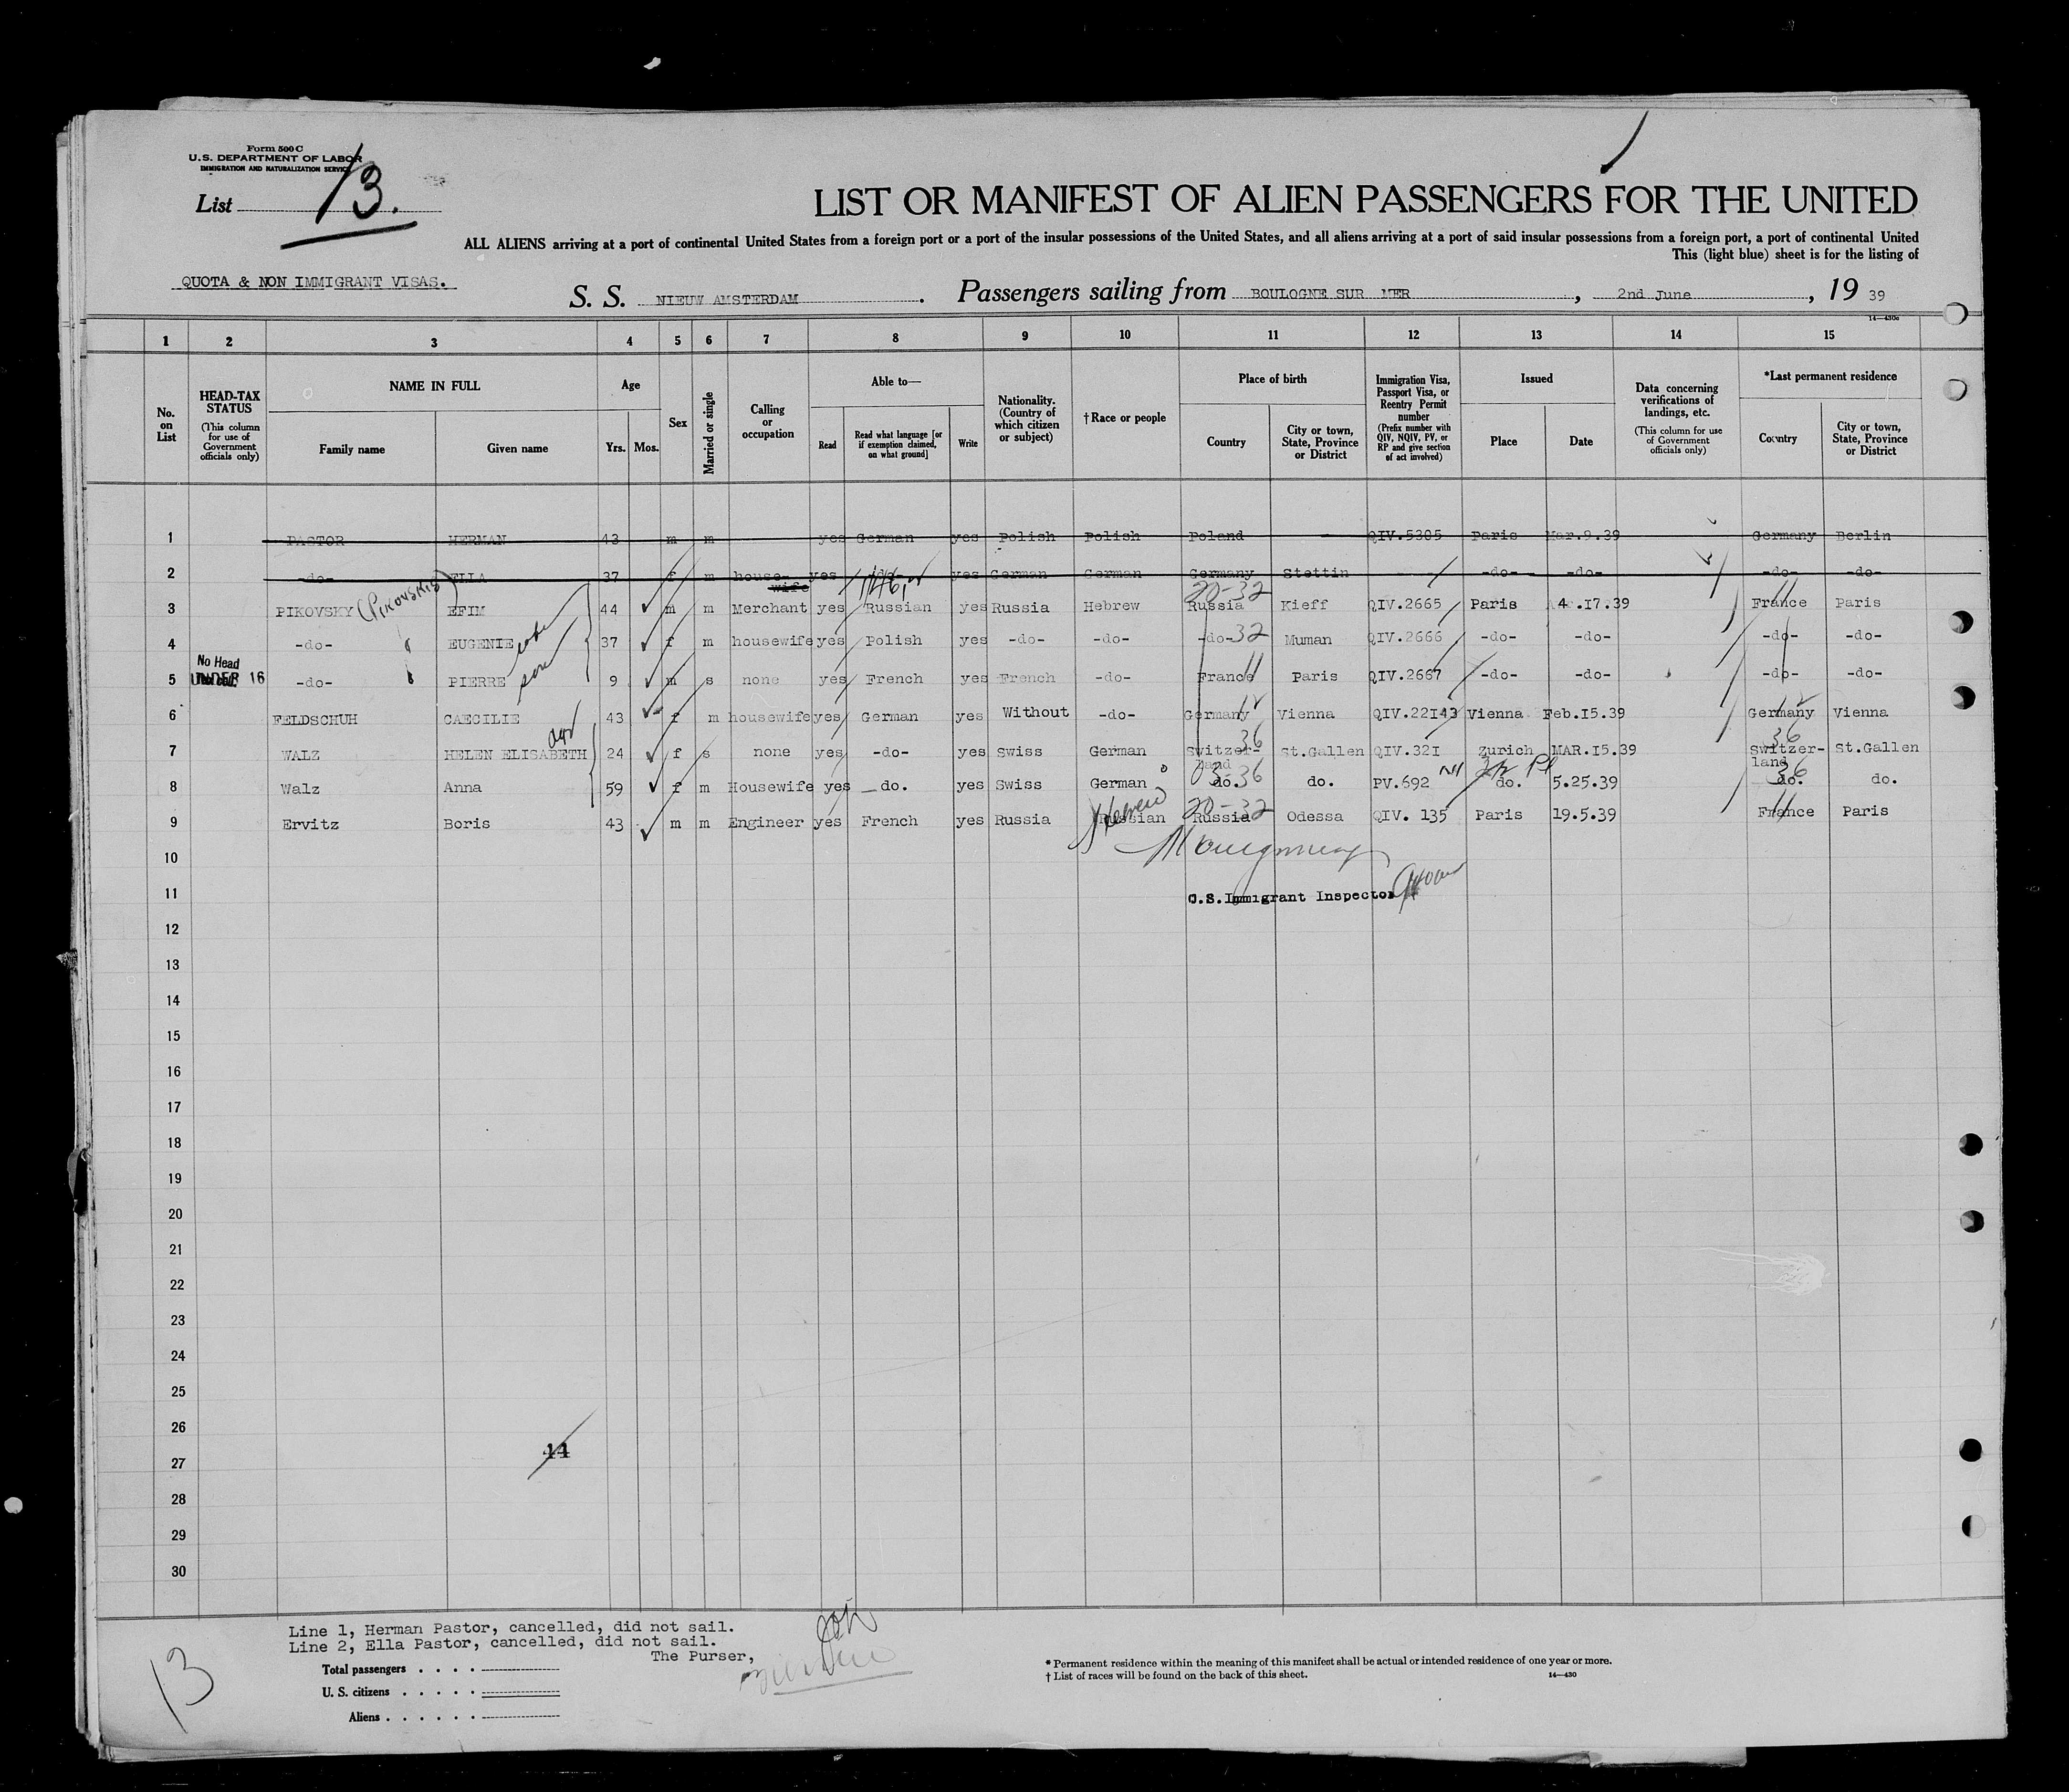 Form 500 C
U.S. DEPARTMENT OF LABOR
IMMIGRATION AND NATURALIZATION SERVICE
List 13.
LIST OR MANIFEST OF ALIEN PASSENGERS FOR THE UNITED
ALL ALIENS arriving at a port of continental United States from a foreign port or a port of the insular possessions of the United States, and all aliens arriving at a port of said insular possessions from a foreign port, a port of continental United
This (light blue) sheet is for the listing of
QUOTA & NON IMMIGRANT VISAS.
S. S. NIEUW AMSTERDAM. Passengers sailing from BOULOGNE SUR MER, 2nd June, 19 39
14—430a
1 2 3 4 5 6 7 8 9 10 11 12 13 14 15
No. on List
HEAD-TAX STATUS (This column for use of Government officials only)
NAME IN FULL
Family name Given name
Age
Yrs. Mos.
Sex
Married or single
Calling or occupation
Able to—
Read Read what language [or if exemption claimed, on what ground] Write
Nationality. (Country of which citizen or subject)
†Race or people
Place of birth
Country City or town, State, Province or District
Immigration Visa, Passport Visa, or Reentry Permit number (Prefix number with QIV, NQIV, PV, or RP and give section of act involved)
Issued
Place Date
Data concerning verifications of landings, etc. (This column for use of Government officials only)
*Last permanent residence
Country City or town, State, Province or District
1 PASTOR HERMAN 43 m m yes German yes Polish Polish Poland — QIV.5305 Paris Mar.9.39 Germany Berlin
2 -do- ELLA 37 f m house-wife yes yes German German Germany Stettin -do- -do- -do- -do-
3 PIKOVSKY (PIKOVSKIS) EFIM 44 m m Merchant yes Russian yes Russia Hebrew 20-32 Russia Kieff QIV.2665 Paris 4.17.39 11 France Paris
4 -do- EUGENIE wife 37 f m housewife yes Polish yes -do- -do- -do- 32 Muman QIV.2666 -do- -do- -do- -do-
No Head
UNDER 16
5 -do- PIERRE son 9 m s none yes French yes French -do- 11 France Paris QIV.2667 -do- -do- -do- -do-
6 FELDSCHUH CAECILIE 43 f m housewife yes German yes Without -do- 12 Germany Vienna QIV.22143 Vienna Feb.15.39 12 Germany Vienna
7 WALZ HELEN ELISABETH 24 f s none yes -do- yes Swiss German 36 Switzer-land St.Gallen QIV.321 Zurich MAR.15.39 36 Switzer-land St.Gallen
8 Walz Anna 59 f m Housewife yes do. yes Swiss German 36 do. do. PV.692 do. 5.25.39 36 do. do.
9 Ervitz Boris 43 m m Engineer yes French yes Russia Hebrew Russian 20-32 Russia Odessa QIV. 135 Paris 19.5.39 11 France Paris
10 Montgomery
11 U.S. Immigrant Inspector
12
13
14
15
16
17
18
19
20
21
22
23
24
25
26
27 14
28
29
30
Line 1, Herman Pastor, cancelled, did not sail.
Line 2, Ella Pastor, cancelled, did not sail.
The Purser,
13
Total passengers
U. S. citizens
Aliens
* Permanent residence within the meaning of this manifest shall be actual or intended residence of one year or more.
† List of races will be found on the back of this sheet.
14—430